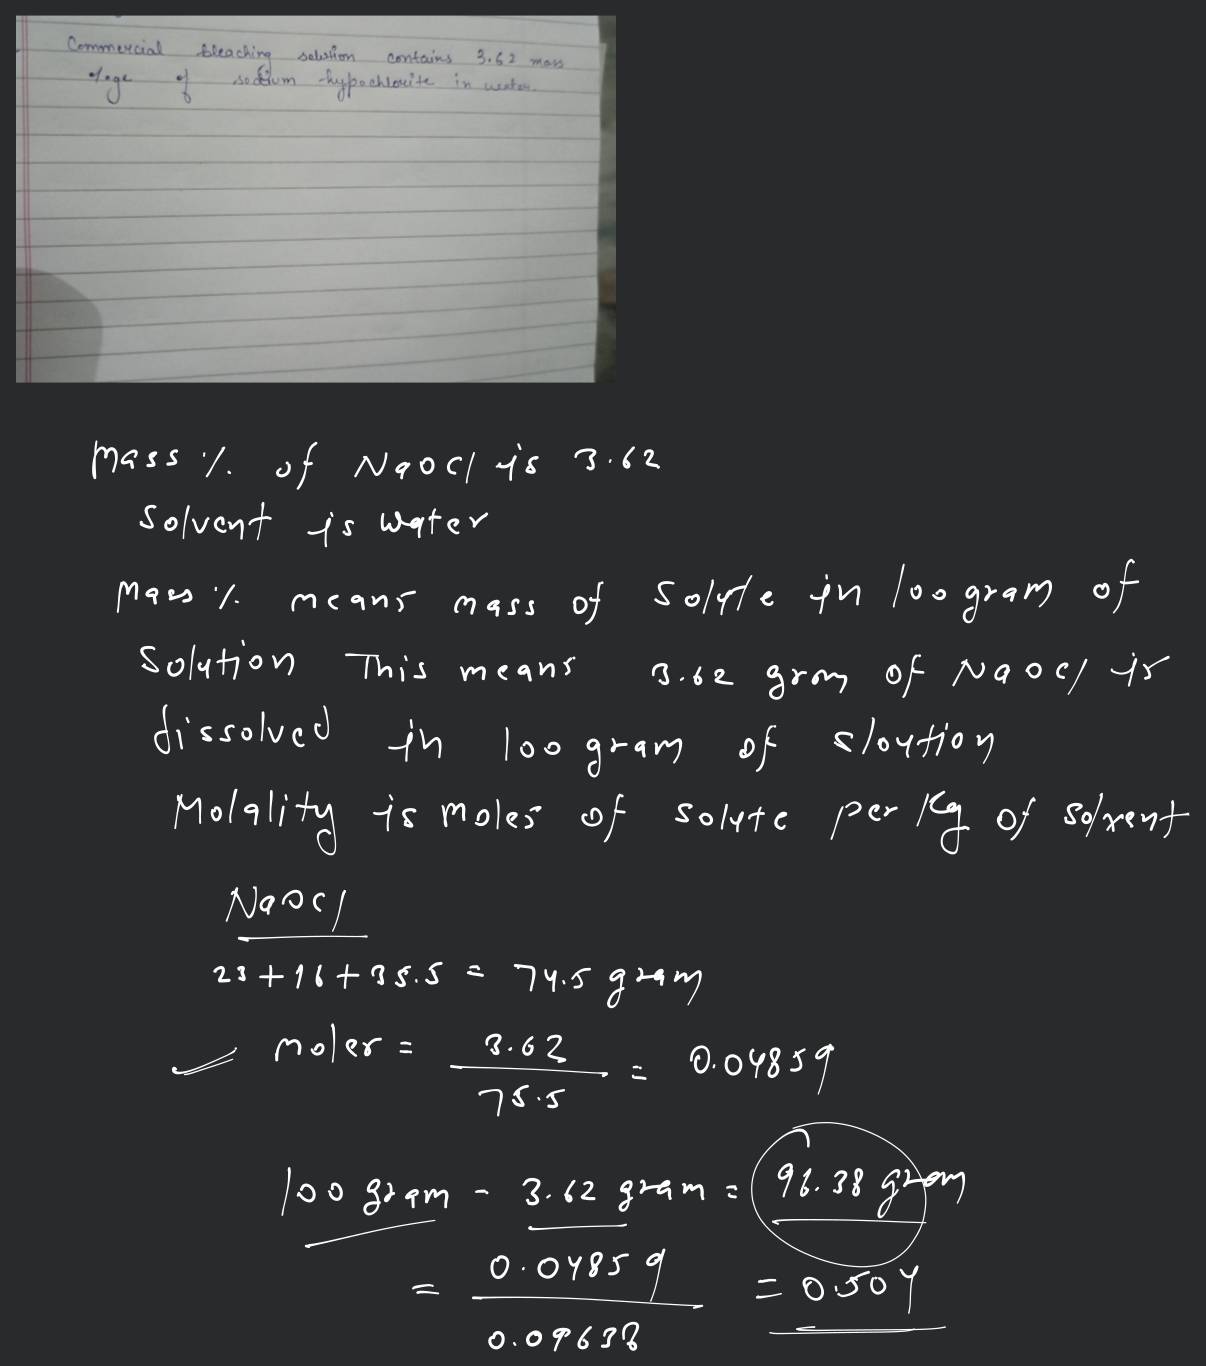 Commercial bleaching solution contains 3.62 mass
%age of sodium hypochlorite in water.
Mass %. of NaOCl is 3.62
Solvent is water
Mass %. means mass of Solute in 100 gram of
Solution This means 3.62 gram of NaOCl is
dissolved in 100 gram of sloution
Molality is moles of solute per Kg of solvent
NaOCl
23+16+35.5 = 74.5 gram
moles = 3.62 / 75.5 = 0.04859
100 gram - 3.62 gram = 96.38 gram
= 0.04859 / 0.09638 = 0.504